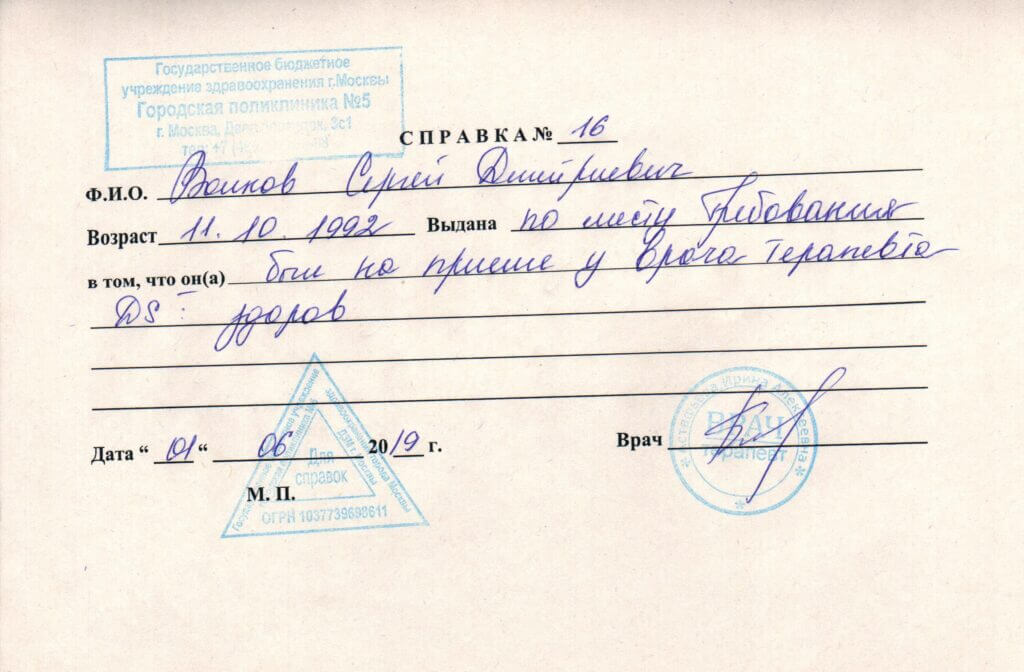 Государственное бюджетное
учреждение здравоохранения г.Москвы
Городская поликлиника №5
г. Москва, 3с1
тел: +7
СПРАВКА № 16
Ф.И.О. Волков Сергей Дмитриевич
Возраст 11.10.1992 Выдана по месту требования
в том, что он(а) был на приеме у врача терапевта
DS: здоров
Дата “ 01 “ 06 2019 г.
Врач
М. П.
Для
справок
ОГРН 1037739698611
Государственное учреждение
здравоохранения города Москвы
ДЗМ г. Москвы
Ирина Алексеевна
ВРАЧ
терапевт